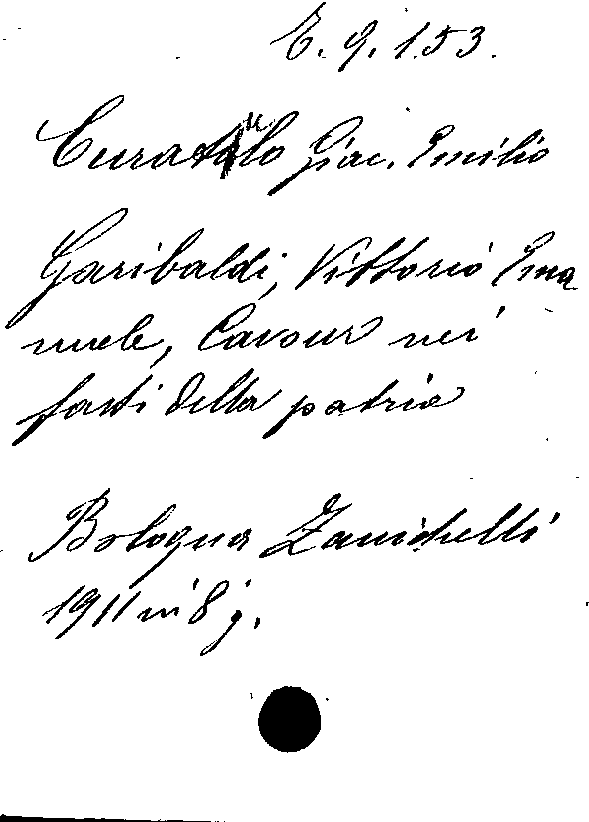 E. 9. 153.
Curatulo Giac. Emilio
Garibaldi, Vittorio Ema
nuele, Cavour nei
fasti della patria
Bologna Zanichelli
1911 in 8 g.